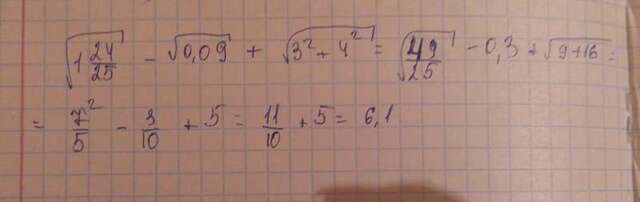 √(1 24/25) - √0,09 + √(3² + 4²) = √(49/25) - 0,3 + √(9+16) =
= 7²/5 - 3/10 + 5 = 11/10 + 5 = 6,1